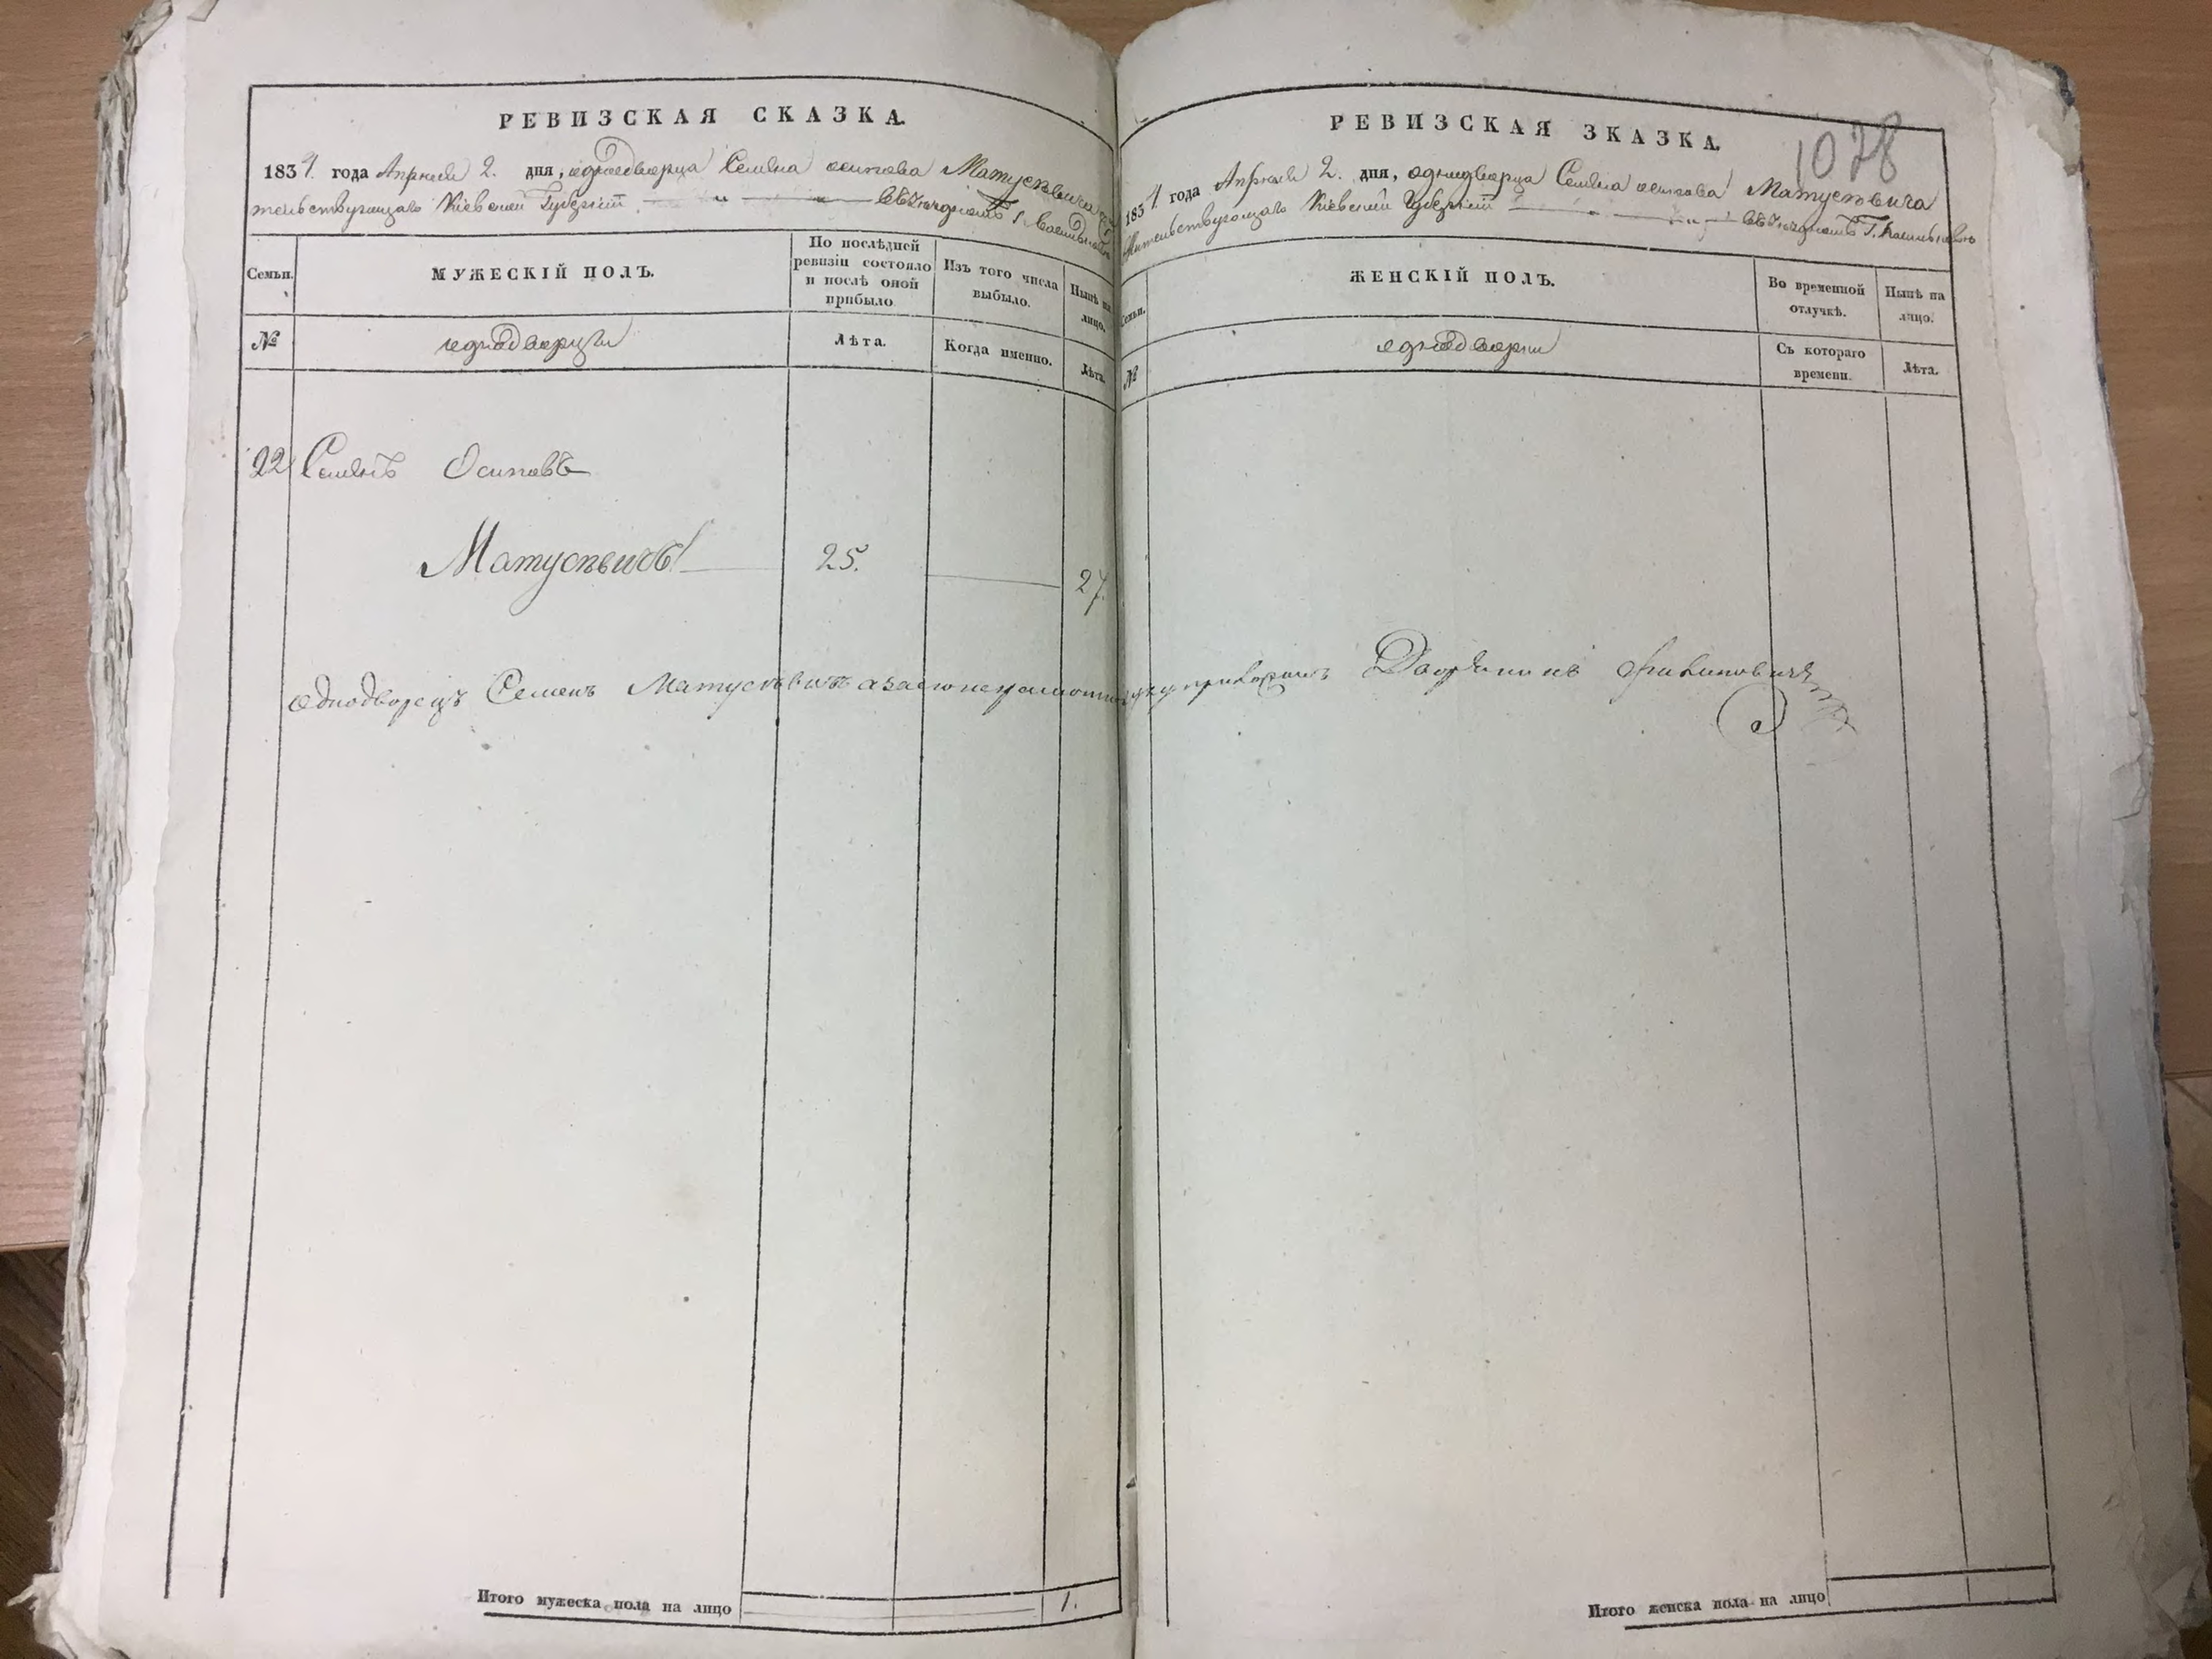 РЕВИЗСКАЯ СКАЗКА.
1834. года Апреля 2. дня, однодворца Семена осипова Матусевича
тельствующаго Кіевской Губерніи въ уездномъ Г. Василькове
Семьи.
МУЖЕСКІЙ ПОЛЪ.
По послѣдней ревизіи состояло и послѣ оной прибыло.
Изъ того числа выбыло.
Нынѣ на лицо.
№
однодворцы
Лѣта.
Когда именно.
Лѣта.
22 Семенъ Осиповъ
Матусевичъ 25. 27.
однодворецъ Семенъ Матусевичъ а за его неграмотного
Итого мужеска пола на лицо 1.
1028
РЕВИЗСКАЯ ЗКАЗКА.
1834 года Апреля 2. дня, однодворца Семена осипова Матусевича
Жительствующаго Кіевской Губерніи въ уездномъ Г. Василькове
Семьи.
ЖЕНСКІЙ ПОЛЪ.
Во временной отлучкѣ.
Нынѣ на лицо.
№
однодворки
Съ котораго времени.
Лѣта.
Дворянинъ
Итого женска пола на лицо